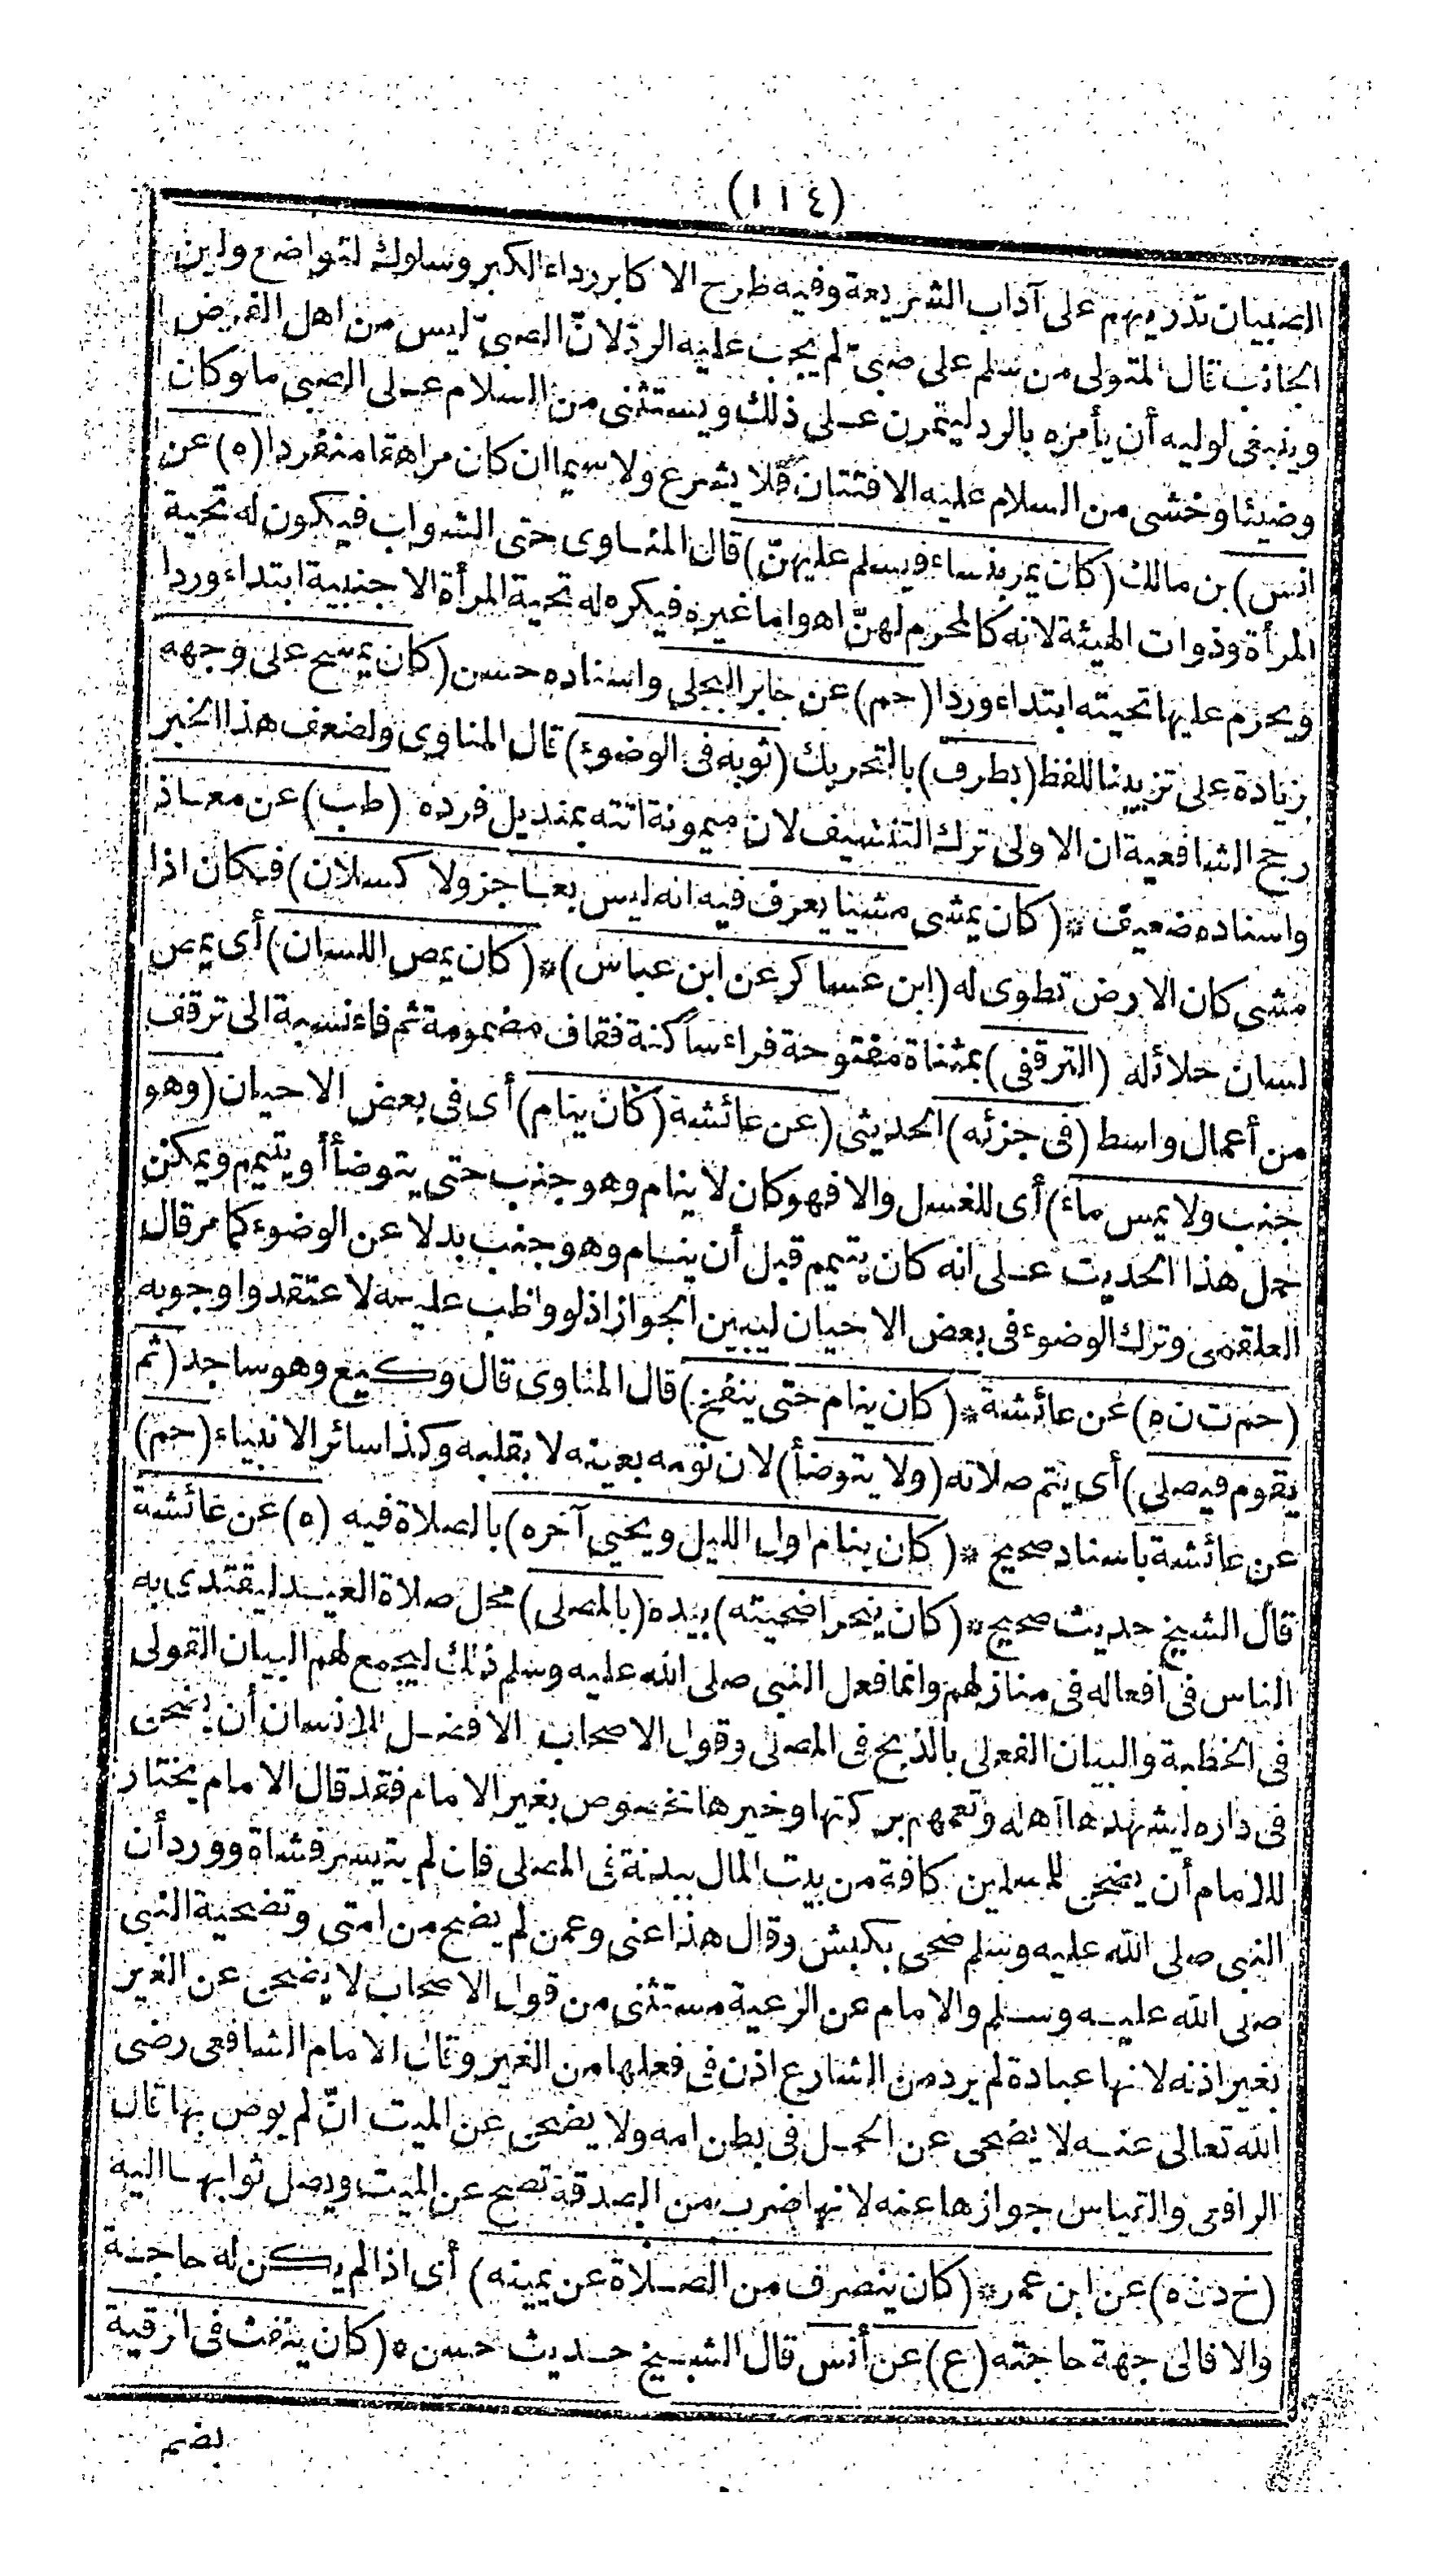 (١١٤)
الصبيان تدريبهم على آداب الشريعة وفيه طرح الاكابر رداء الكبر وسلوك لتواضع ولين
الجانب قال المتولى من سلم على صبىّ لم يجب عليه الردّ لانّ الصبىّ ليس من اهل الفرض
وينبغى لوليه أن يأمره بالرد ليتمرن عـلى ذلك ويستثنى من السلام عـلى الصبى مالوكان
وضيئا وخشى من السلام عليه الافتتان فلا يشرع ولاسيما ان كان مراهقا منفردا (ه) عن
انس) بن مالك (كان يمر بنساء فيسلم عليهنّ) قال المنـاوى حتى الشواب فيكون له تحية
المرأة وذوات الهيئة لانه كالمحرم لهنّ اه واما غيره فيكره له تحية المرأة الاجنبية ابتداء وردا
ويحرم عليها تحيته ابتداء وردا (حم) عن جابر البجلى واسناده حسن (كان يمسح على وجهه
بزيادة على تزيدنا للفظ (بطرف) بالتحريك (ثوبه فى الوضوء) قال المناوى ولضعف هذا الخبر
رجح الشافعية ان الاولى ترك التنشيف لان ميمونة اتته بمنديل فرده (طب) عن معـاذ
واسناده ضعيف * (كان يمشى مشيا يعرف فيه انه ليس بعـاجز ولا كسلان) فـكان اذا
مشى كان الارض تطوى له (ابن عساكر عن ابن عباس) * (كان يمص اللسان) أى يمص
لسان حلائله (الترقفى) بمثناة مفتوحة فراء ساكنة فقاف مضمومة ثم فاء نسبة الى ترقف
من أعمال واسط (فى جزئه) الحديثى (عن عائشة (كان ينام) أى فى بعض الاحيان (وهو
جنب ولا يمس ماء) أى للغسل والا فهو كان لا ينام وهو جنب حتى يتوضأ أو يتيمم ويمكن
حمل هذا الحديث عـلى انه كان يتيمم قبل أن ينـام وهو جنب بدلا عن الوضوء كما مر قال
العلقمى وترك الوضوء فى بعض الاحيان ليبين الجواز اذ لو واظب عليـه لاعتقدوا وجوبه
(حم ت ن ه) عن عائشة * (كان ينام حتى ينفخ) قال المناوى قال وكـيع وهو ساجد (ثم
يقوم فيصلى) أى يتم صلاته (ولا يتوضأ) لان نومه بعينه لا بقلبه وكذا سائر الانبياء (حم)
عن عائشة باسناد صحيح * (كان ينام اول الليل ويحيي آخره) بالصلاة فيه (ه) عن عائشة
قال الشيخ حديث صحيح * (كان ينحر اضحيته) بيده (بالمصلى) محل صلاة العيـد ليقتدى به
الناس فى افعاله فى منازلهم وانما فعل النبى صلى الله عليه وسلم ذلك ليجمع لهم البيان القولى
فى الخطبة والبيان الفعلى بالذبح فى المصلى وقول الاصحاب الافضـل للانسان أن يضحى
فى داره ليشهدها اهله وتعمهم بركتها وخيرها مخصوص بغير الامام فقد قال الامام يختار
للامام أن يضحى للمسلمين كافة من بيت المال ببدنة فى المصلى فان لم يتيسر فشاة وورد أن
النبى صلى الله عليه وسلم ضحى بكبش وقال هذا عنى وعمن لم يضح من امتى وتضحية النبى
صلى الله عليـه وسـلم والامام عن الرعية مستثنى من قول الاصحاب لا يضحى عن الغير
بغير اذنه لانها عبادة لم يرد من الشارع اذن فى فعلها من الغير وقال الامام الشافعى رضى
الله تعالى عنـه لا يضحى عن الحمـل فى بطن امه ولا يضحى عن الميت انّ لم يوص بها قال
الرافعى والقياس جوازها عنه لانها ضرب من الصدقة تصح عن الميت ويصل ثوابهـا اليه
(خ د ن ه) عن ابن عمر * (كان ينصرف من الصـلاة عن يمينه) أى اذا لم يكـن له حاجـة
والا فالى جهة حاجته (ع) عن أنس قال الشيـخ حـديث حسن ه (كان ينفث فى الرقية
بضم